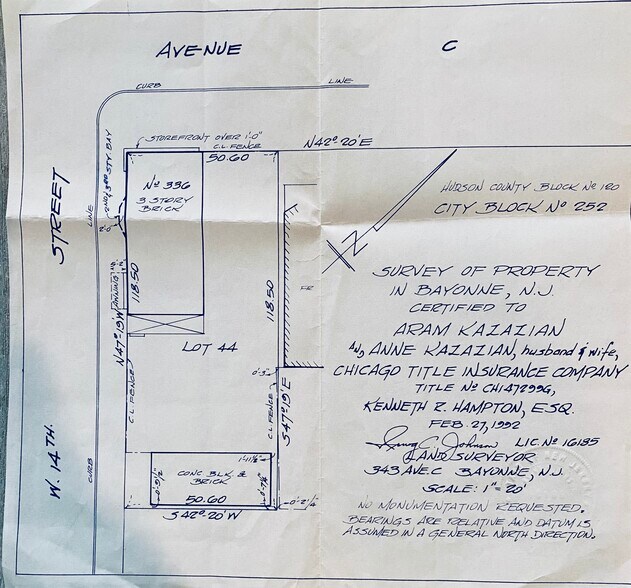 AVENUE C
CURB LINE
STOREFRONT OVER 1'-0"
C.L. FENCE
50.60
N42°-20'E
2ND & 3RD STY. BAY
Nº 336
3 STORY
BRICK
STREET
LINE
AWNING
118.50
118.50
N47°-19'W
LOT 44
C.L. FENCE
0'-3"
S 47°-19'E
C.L. FENCE
W. 14TH.
CURB
CONC. BLK. &
BRICK
50.60
S 42°-20'W
0'-2¼"
FR
HUDSON COUNTY BLOCK Nº 120
CITY BLOCK Nº 252
N
SURVEY OF PROPERTY
IN BAYONNE, N.J.
CERTIFIED TO
ARAM KAZAZIAN
AND ANNE KAZAZIAN, husband & wife,
CHICAGO TITLE INSURANCE COMPANY
TITLE Nº CH147299G,
KENNETH Z. HAMPTON, ESQ.
FEB. 27, 1992
Irving C. Johnson LIC. Nº 16185
LAND SURVEYOR
343 AVE C BAYONNE, N.J.
SCALE: 1"=20'
NO MONUMENTATION REQUESTED.
BEARINGS ARE RELATIVE AND DATUM IS
ASSUMED IN A GENERAL NORTH DIRECTION.